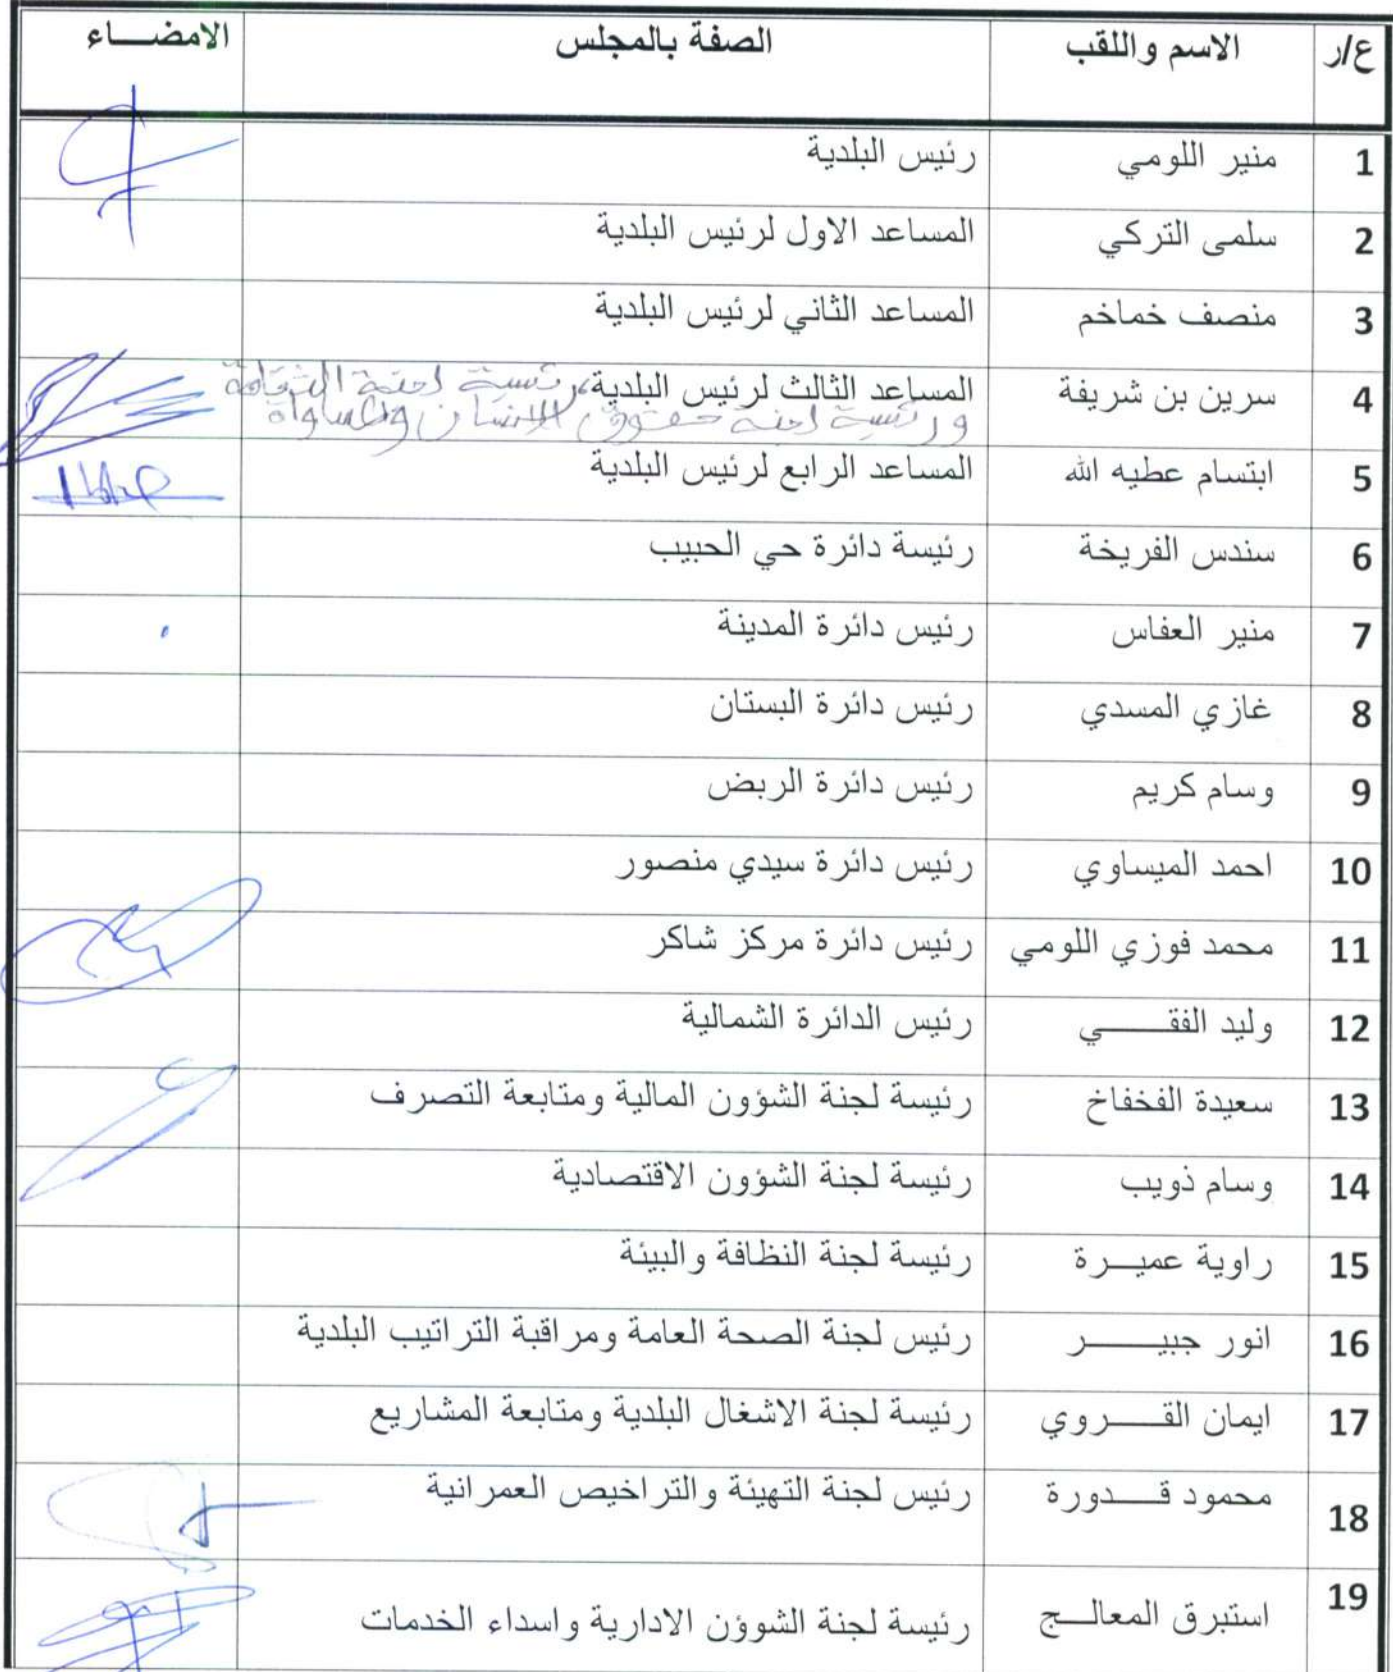 ع/ر الاسم واللقب الصفة بالمجلس الامضـــاء
1 منير اللومي رئيس البلدية
2 سلمى التركي المساعد الاول لرئيس البلدية
3 منصف خماخم المساعد الثاني لرئيس البلدية
4 سرين بن شريفة المساعد الثالث لرئيس البلدية، رئيسة لجنة الثقافة
ورئيسة لجنة حقوق الانسان والمساواة
5 ابتسام عطيه الله المساعد الرابع لرئيس البلدية
6 سندس الفريخة رئيسة دائرة حي الحبيب
7 منير العفاس رئيس دائرة المدينة
8 غازي المسدي رئيس دائرة البستان
9 وسام كريم رئيس دائرة الربض
10 احمد الميساوي رئيس دائرة سيدي منصور
11 محمد فوزي اللومي رئيس دائرة مركز شاكر
12 وليد الفقـــــي رئيس الدائرة الشمالية
13 سعيدة الفخفاخ رئيسة لجنة الشؤون المالية ومتابعة التصرف
14 وسام ذويب رئيسة لجنة الشؤون الاقتصادية
15 راوية عميـــرة رئيسة لجنة النظافة والبيئة
16 انور جبيـــــــر رئيس لجنة الصحة العامة ومراقبة التراتيب البلدية
17 ايمان القـــــروي رئيسة لجنة الاشغال البلدية ومتابعة المشاريع
18 محمود قـــــدورة رئيس لجنة التهيئة والتراخيص العمرانية
19 استبرق المعالـــج رئيسة لجنة الشوؤن الادارية واسداء الخدمات